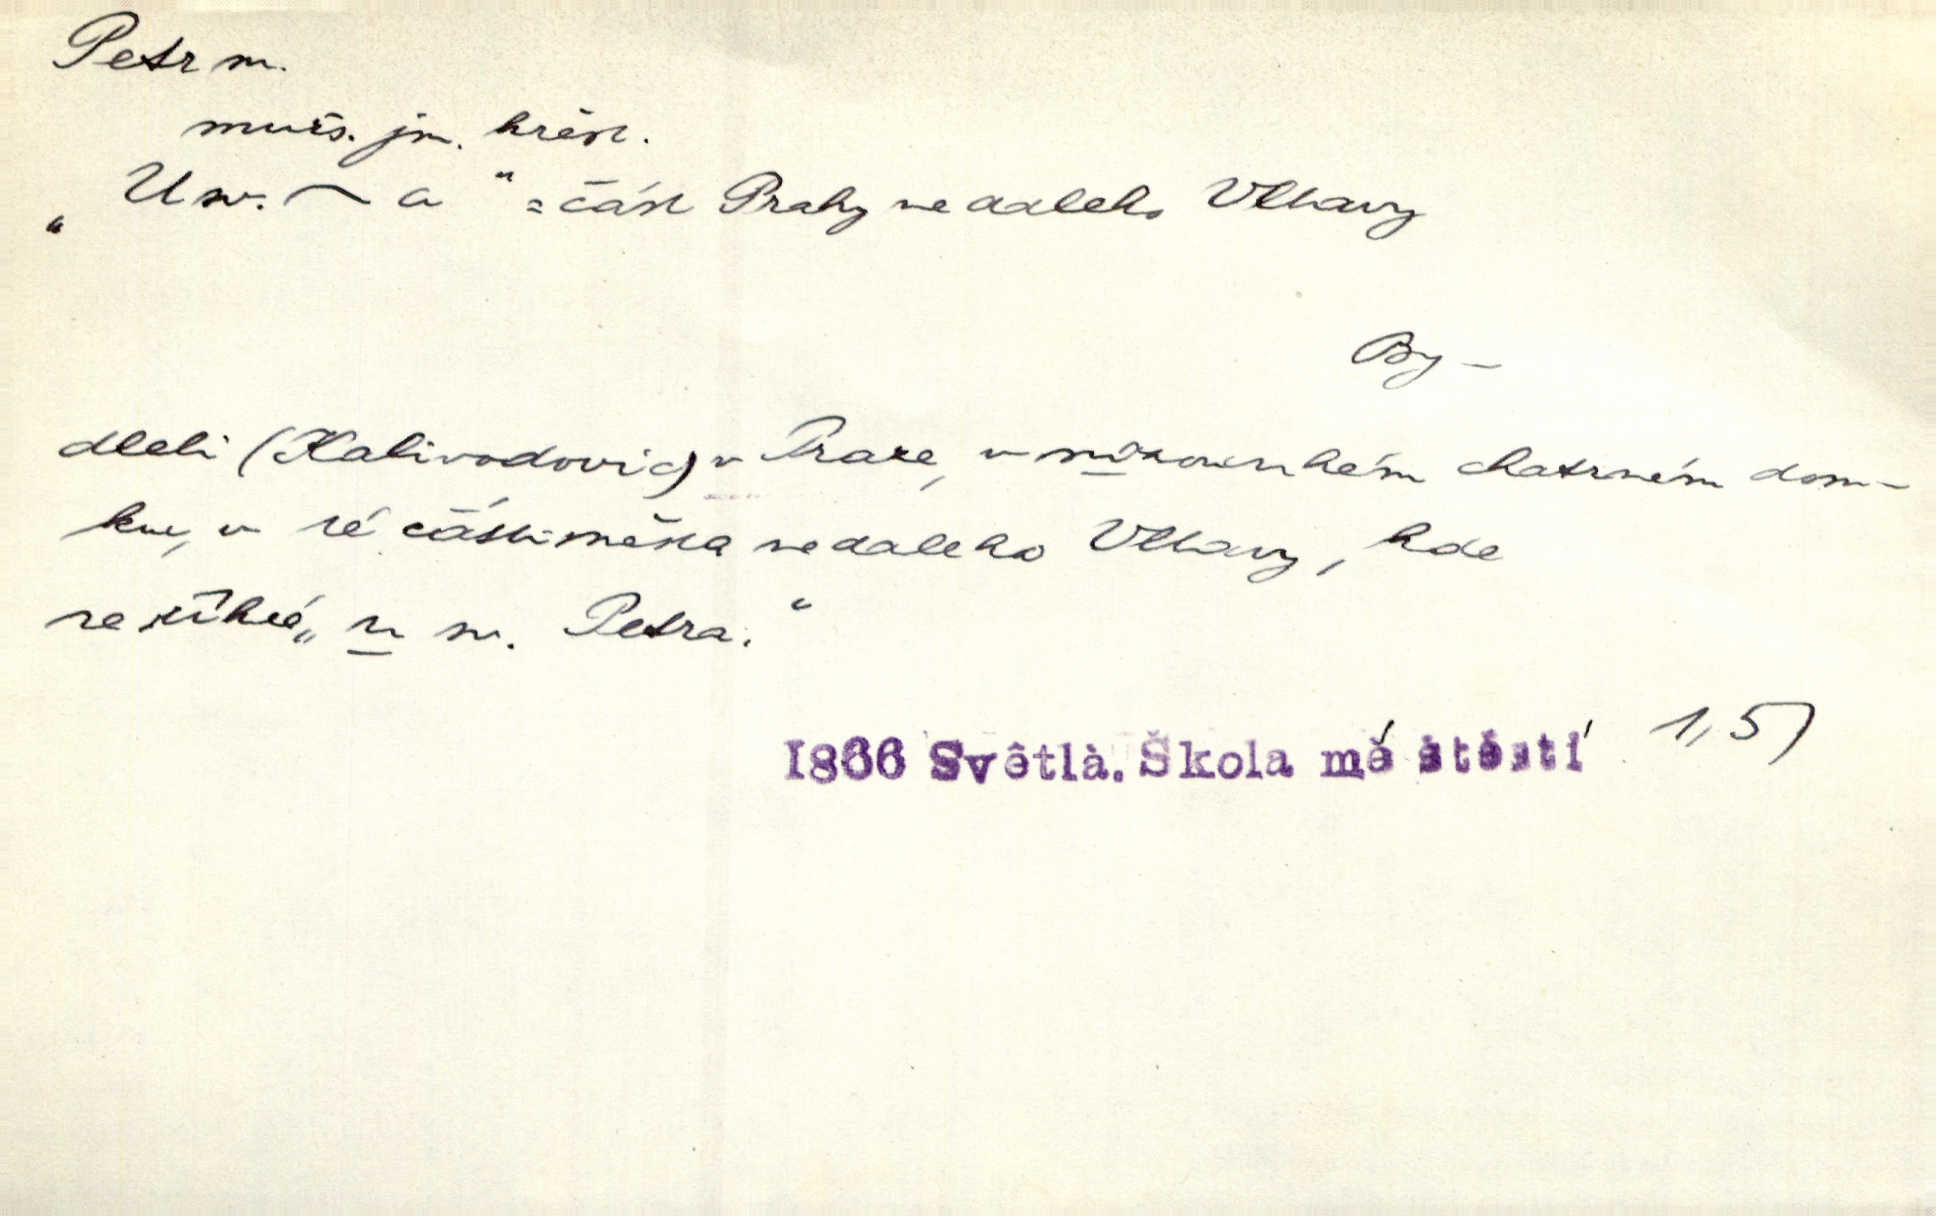 Petr m.
muž. jm. křest.
„U sv. ~ a" = část Prahy nedaleko Vltavy
By-
dleli (Kalivodovic) v Praze, v nizounkém chatrném dom-
ku, v té části města nedaleko Vltavy, kde
se říká „u sv. Petra."
1866 Světlà. Škola mé štěstí 1,5)